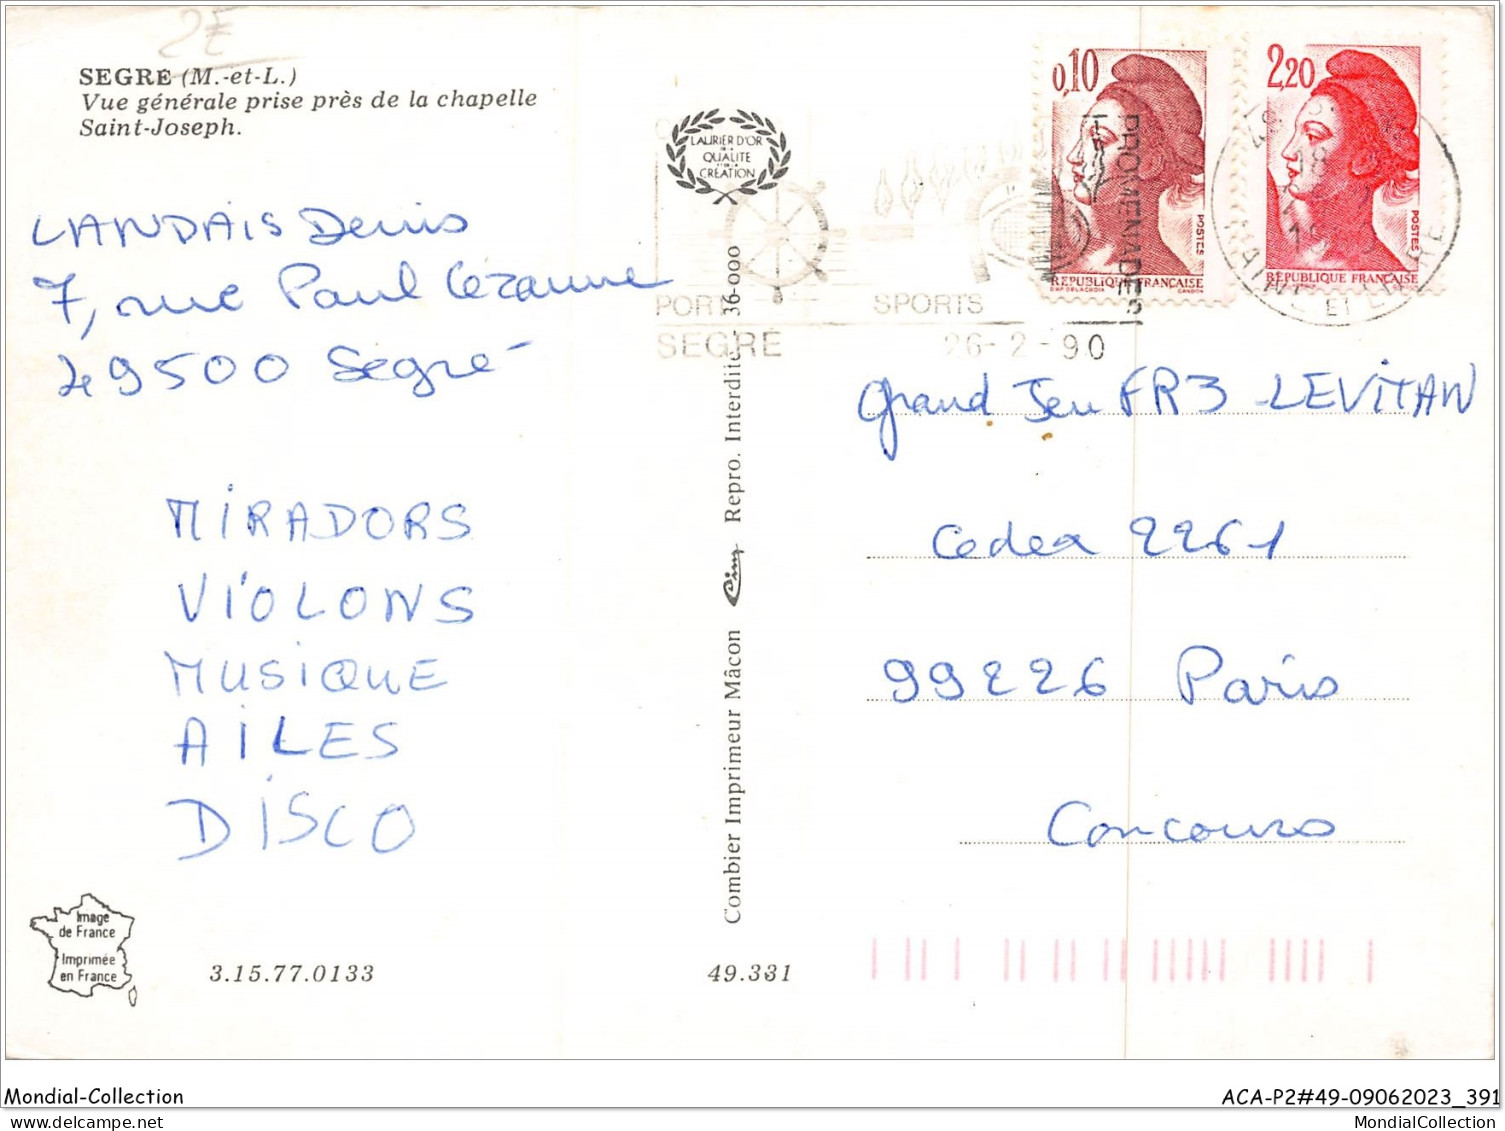 2E
SEGRE (M.-et-L.)
Vue générale prise près de la chapelle
Saint-Joseph.
LAURIER D'OR
DE LA
QUALITE
ET DE LA
CRÉATION
0,10
POSTES
RÉPUBLIQUE FRANÇAISE
2,20
POSTES
RÉPUBLIQUE FRANÇAISE
PROMENADES
PORT
SPORTS
SEGRÉ
26-2-90
MAINE ET LOIRE
LANDAIS Denis
7, rue Paul Cézanne
49500 Segré
MIRADORS
VIOLONS
MUSIQUE
AILES
DISCO
Combier Imprimeur Mâcon Cim Repro. Interdite - 36-000
Grand Jeu FR3 - LEVITAN
Cedex 2261
99226 Paris
Concours
Image
de France
Imprimée
en France
3.15.77.0133
49.331
Mondial-Collection
ACA-P2#49-09062023_391
MondialCollection